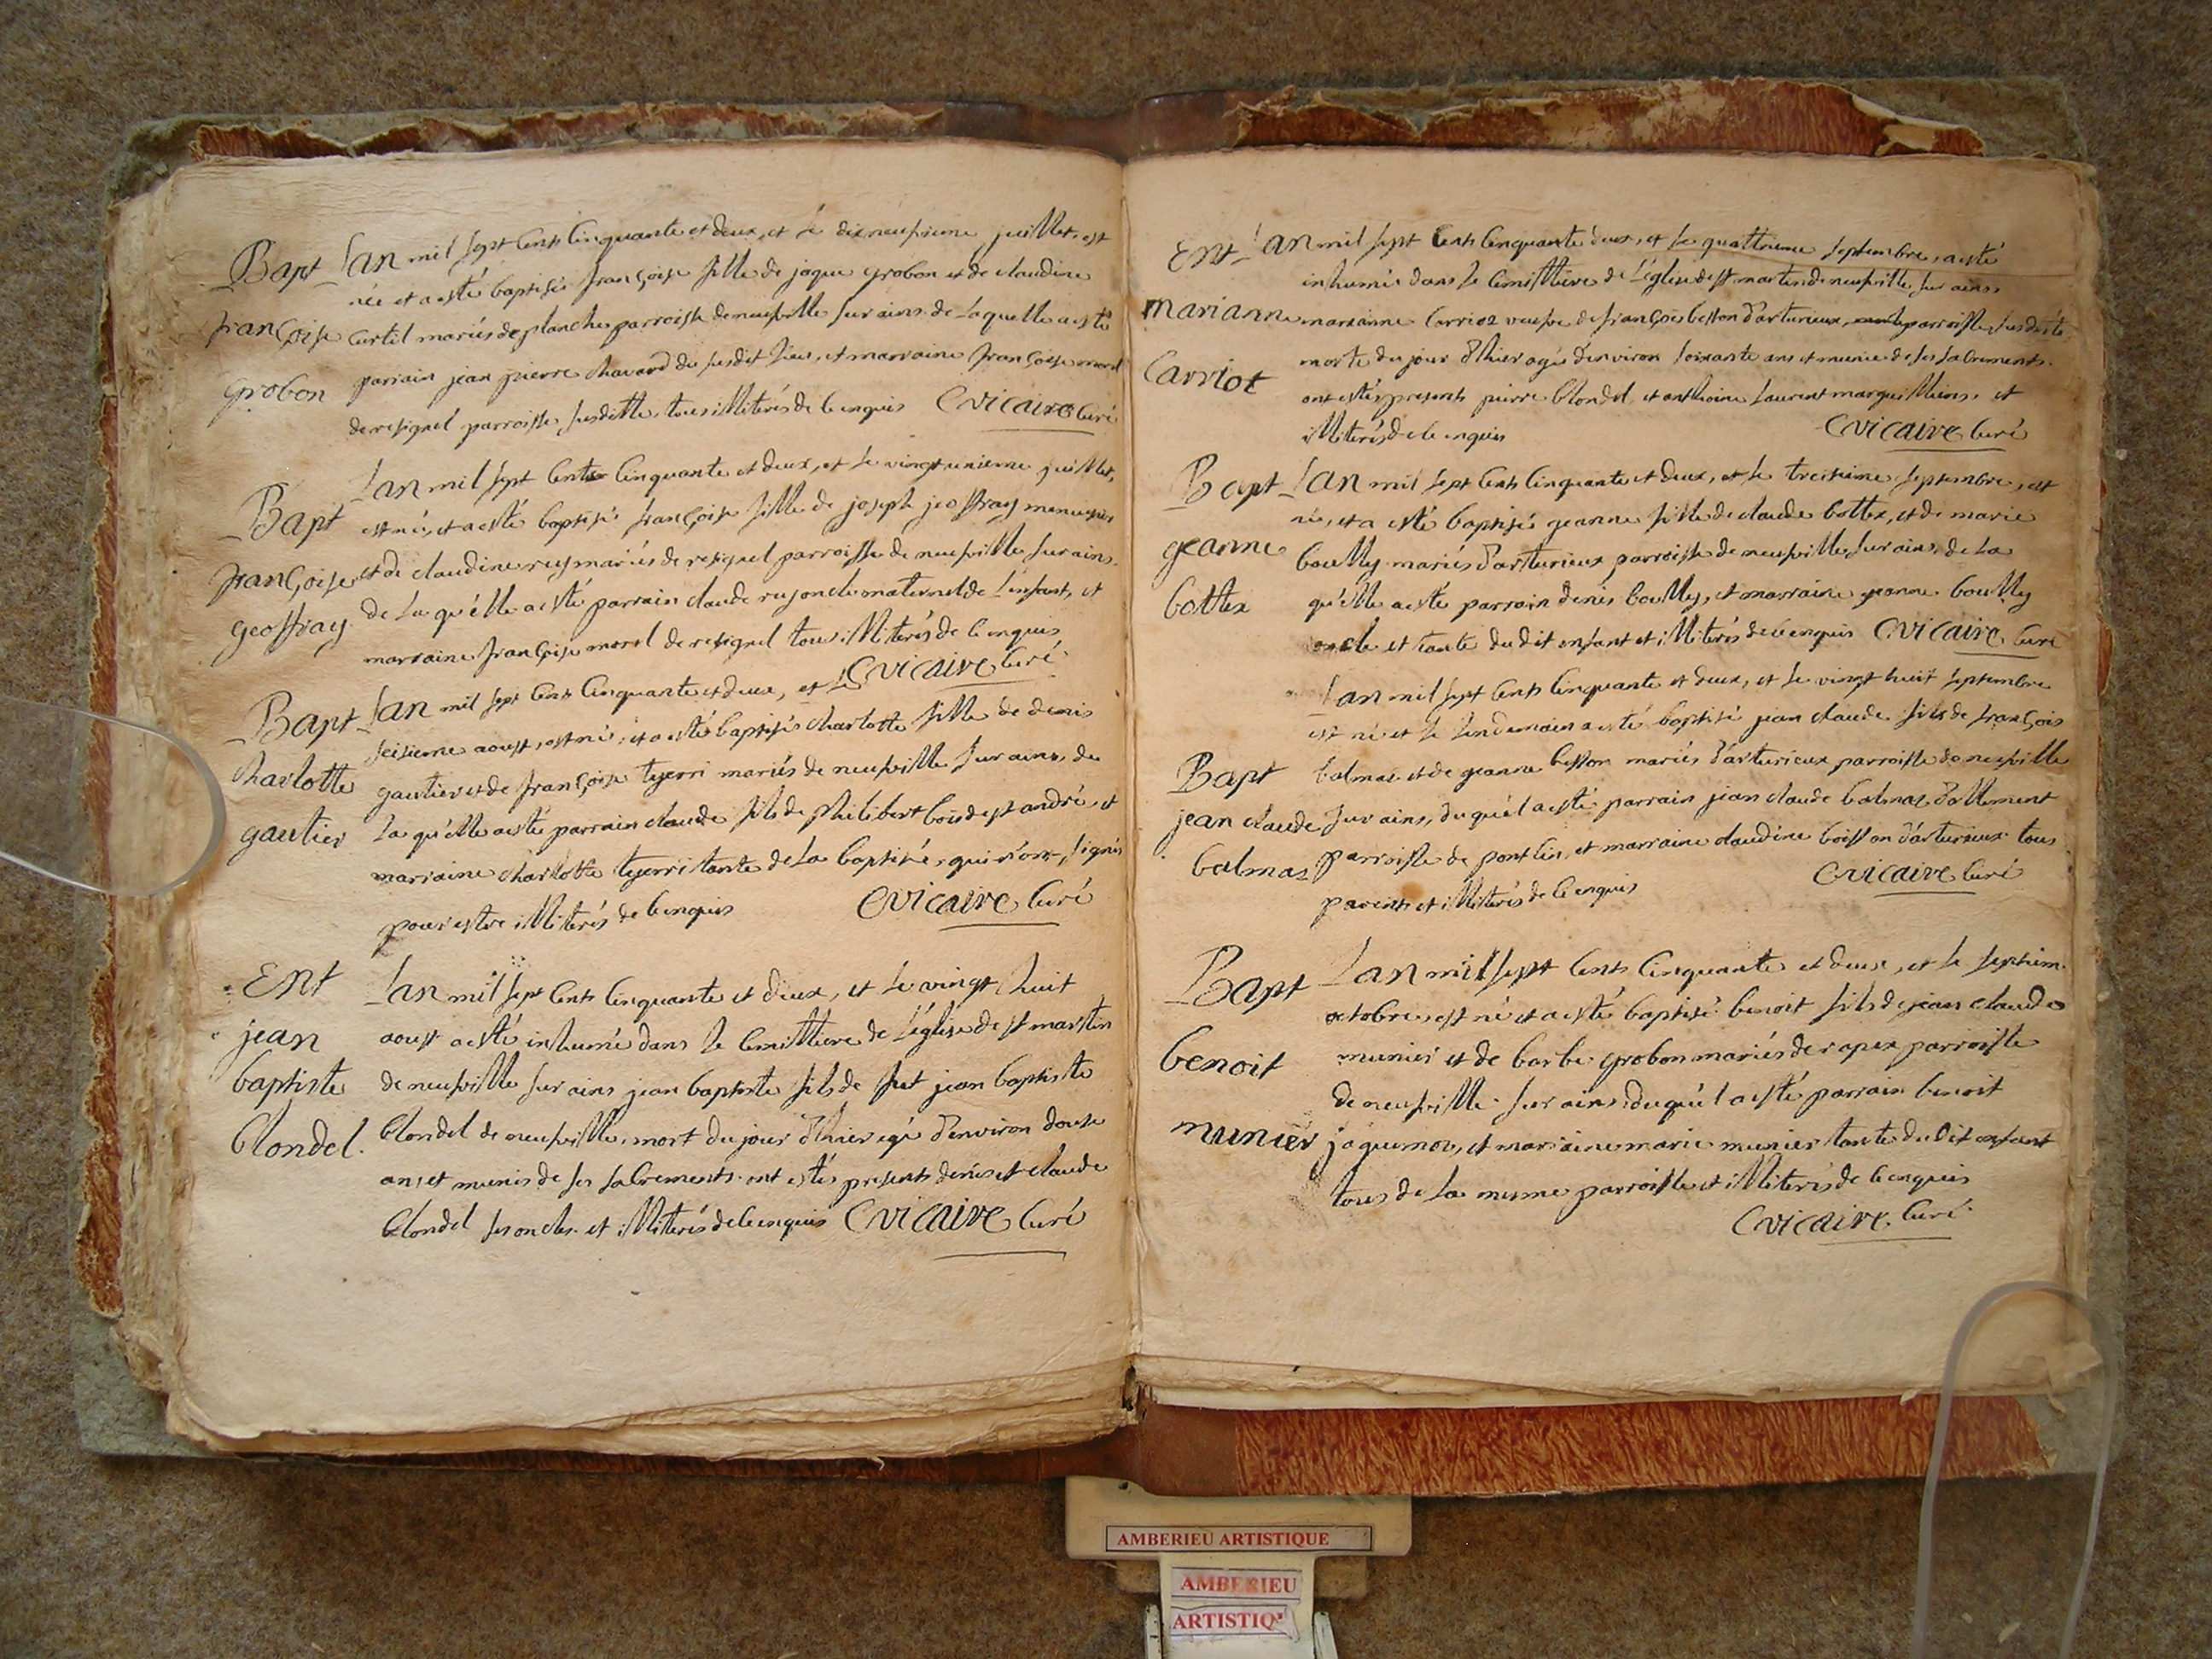 Bapt
françoise
grobon
Lan mil sept cents cinquante et deux, et le dixneufvieme juillet, est
née et a esté baptisée françoise fille de jaque grobon et de claudine
curtil mariés de planche parroisse de neufville sur ains de laquelle a esté
parrain jean pierre chavard du susdit lieu, et marraine françoise morel
de resignel parroisse susditte tous illiterés de ce enquis Cvicaire curé
Bapt
françoise
geoffray
Lan mil sept cents cinquante et deux, et le vingt unieme juillet,
est née, et a esté baptisée françoise fille de joseph jeoffray menusier
et de claudine ruy mariés de resignel parroisse de neufville sur ains
de la qu'elle a esté parrain claude ruy oncle maternel de l'enfant, et
marraine françoise morel de resignel tous illiterés de ce enquis
Cvicaire curé
Bapt
charlotte
gautier
Lan mil sept cents cinquante et deux, et le
seisieme aoust, est née, et a esté baptisée charlotte fille de denis
gautier et de françoise tyerri mariés de neufville sur ains, de
la qu'elle a esté parrain claude fils de philibert bois de st andré, et
marraine charlotte tyerri tante de la baptisée, qui n'ont signés
pour estre illiterés de ce enquis Cvicaire curé
Ent
jean
baptiste
blondel.
Lan mil sept cents cinquante et deux, et le vingt huit
aoust a esté inhumé dans le cemittiere de l'église de st martin
de neufville sur ains jean baptiste fils de feut jean baptiste
blondel de neufville, mort du jour d'hier agé d'environ douse
ans et munis de ses sacrements. ont estés presents denis et claude
blondel ses oncles et illiterés de ce enquis Cvicaire curé
Ent
mariane
Carriot
Lan mil sept cents cinquante deux, et le quattrieme septembre, a esté
inhumée dans le cemittiere de l'église de st martin de neufville sur ains,
marianne carrioz veufve de françois besson d'arturieux, parroisse susditte
morte du jour d'hier agée d'environ soixante ans et munie de ses sacrements.
ont estés presents pierre blondel et anthoine laurent marguilliers, et
illiterés de ce enquis Cvicaire curé
Bapt
geanne
bottex
Lan mil sept cents cinquante et deux, et le treisieme septembre, est
née, et a esté baptisée geanne fille de claude bottex, et de marie
boully mariés d'arturieux parroisse de neufville sur ains, de la
qu'elle a esté parrain denis boully, et marraine geanne boully
oncle et tante du dit enfant et illiterés de ce enquis Cvicaire curé
Bapt
jean claude
balmaz
Lan mil sept cents cinquante et deux, et le vingt huit septembre
est né et le lendemain a esté baptisé jean claude fils de françois
balmaz et de geanne besson mariés d'arturieux parroisse de neufville
sur ains, du quél a esté parrain jean claude balmaz d'ollement
parroisse de pontcin, et marraine claudine boisson d'arturieux tous
parents et illiterés de ce enquis Cvicaire curé
Bapt
benoit
munier
Lan mil sept cents cinquante et deux, et le septiem
octobre, est né et a esté baptisé benoit fils de jean claude
munier et de barbe grobon mariés de rapex parroisse
de neufville sur ains, du quél a esté parrain benoit
jaquemoz, et marraine marie munier tante du dit enfant
tous de la mesme parroisse et illiterés de ce enquis
Cvicaire curé
AMBERIEU ARTISTIQUE
AMBERIEU
ARTISTIQ